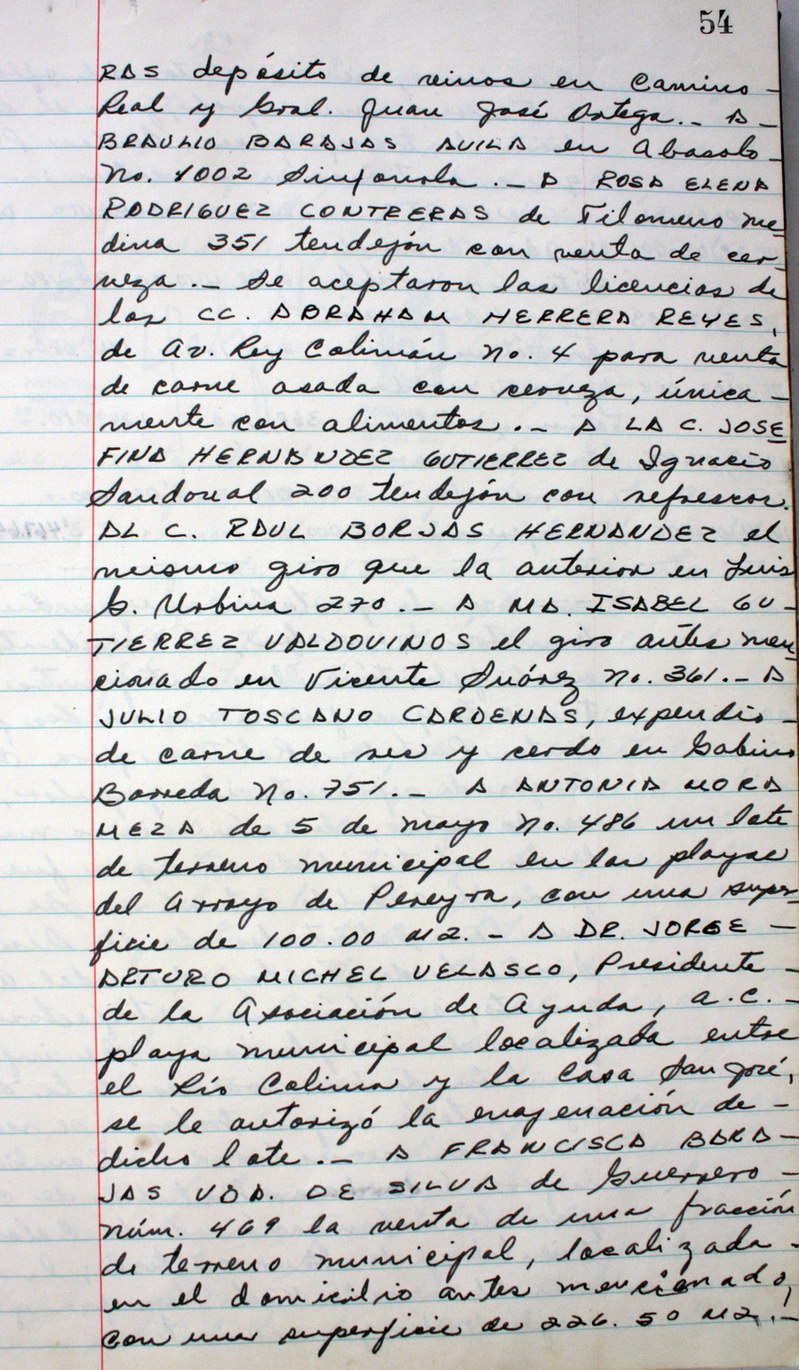 54
RAS depósito de vinos en Camino -
Real y Gral. Juan José Ortega.- A -
BRAULIO BARAJAS AVILA en Abasolo -
No. 1002 Sinfonola.- A ROSA ELENA
RODRIGUEZ CONTRERAS de Filomeno Me
dina 351 tendejón con venta de cer-
veza.- Se aceptaron las licencias de
los CC. ABRAHAM HERRERA REYES,
de Av. Rey Colimán No. 4 para venta
de carne asada con cerveza, única -
mente con alimentos.- A LA C. JOSE
FINA HERNANDEZ GUTIERREZ de Ignacio
Sandoval 200 tendejón con refrescos.
AL C. RAUL BORJAS HERNANDEZ el
mismo giro que la anterior en Luis
G. Urbina 270.- A MA. ISABEL GU-
TIERREZ VALDOVINOS el giro antes men
cionado en Vicente Suárez No. 361.- A
JULIO TOSCANO CARDENAS, expendio -
de carne de res y cerdo en Gabino
Barreda No. 751.- A ANTONIA MORA
MEZA de 5 de Mayo No. 486 un lote
de terreno municipal en las playas
del Arroyo de Pereyra, con una super-
ficie de 100.00 M2.- A DR. JORGE -
ARTURO MICHEL VELASCO, Presidente -
de la Asociación de Ayuda, A.C. -
playa municipal localizada entre
el Río Colima y la Casa San José,
se le autorizó la enajenación de -
dicho lote.- A FRANCISCA BARA -
JAS VDA. DE SILVA de Guerrero -
núm. 469 la venta de una fracción
de terreno municipal, localizada -
en el domicilio antes mencionado,
con una superficie de 226.50 M2.-